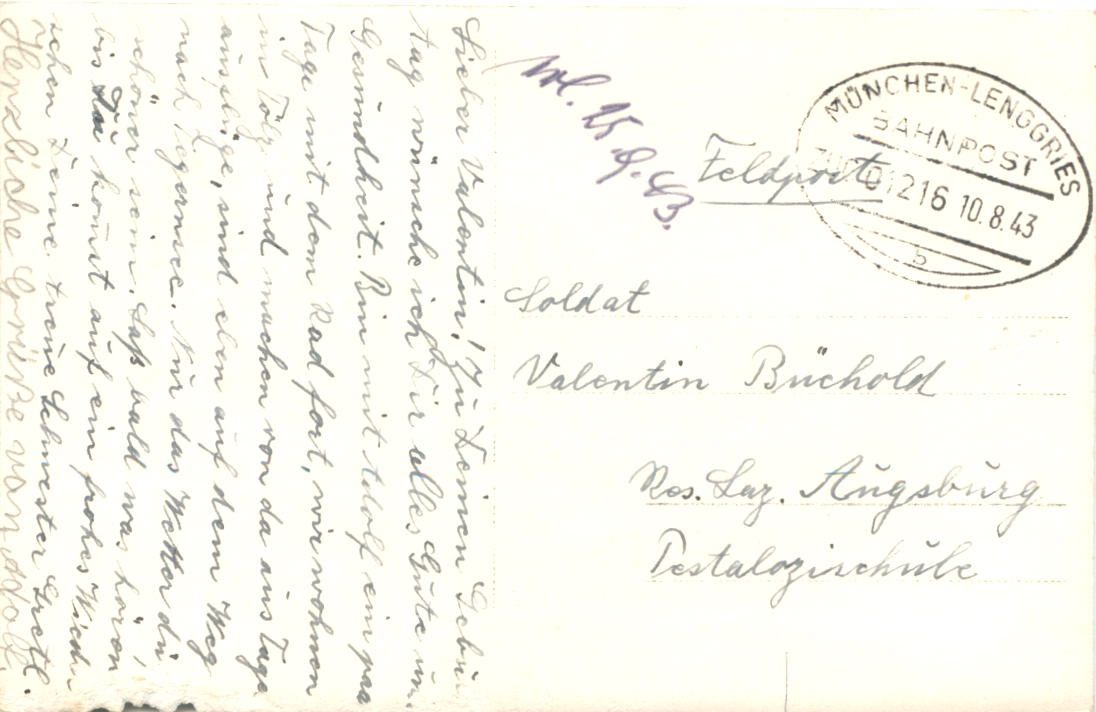 Lieber Valentin! Zu Deinen Gebu
tag wünsche ich Dir alles Gute un
Gesundheit. Bin mit Adolf ein paa
Tage mit dem Rad fort, wir wohnen
in Tölz und machen von da aus Tage
ausflüge, sind eben auf dem Weg
nach Tegernsee. Nur das Wetter dü
schöner sein. Laß bald was hören,
bis Du kommst auf ein frohes Wieder
sehen Deine treue Schwester Gretl.
Herzliche Grüße von Adolf.
25.9.43.
MÜNCHEN-LENGGRIES
BAHNPOST
ZUG 01216 10.8.43
b
Feldpost
Soldat
Valentin Büchold
Res. Laz. Augsburg
Pestalozischule